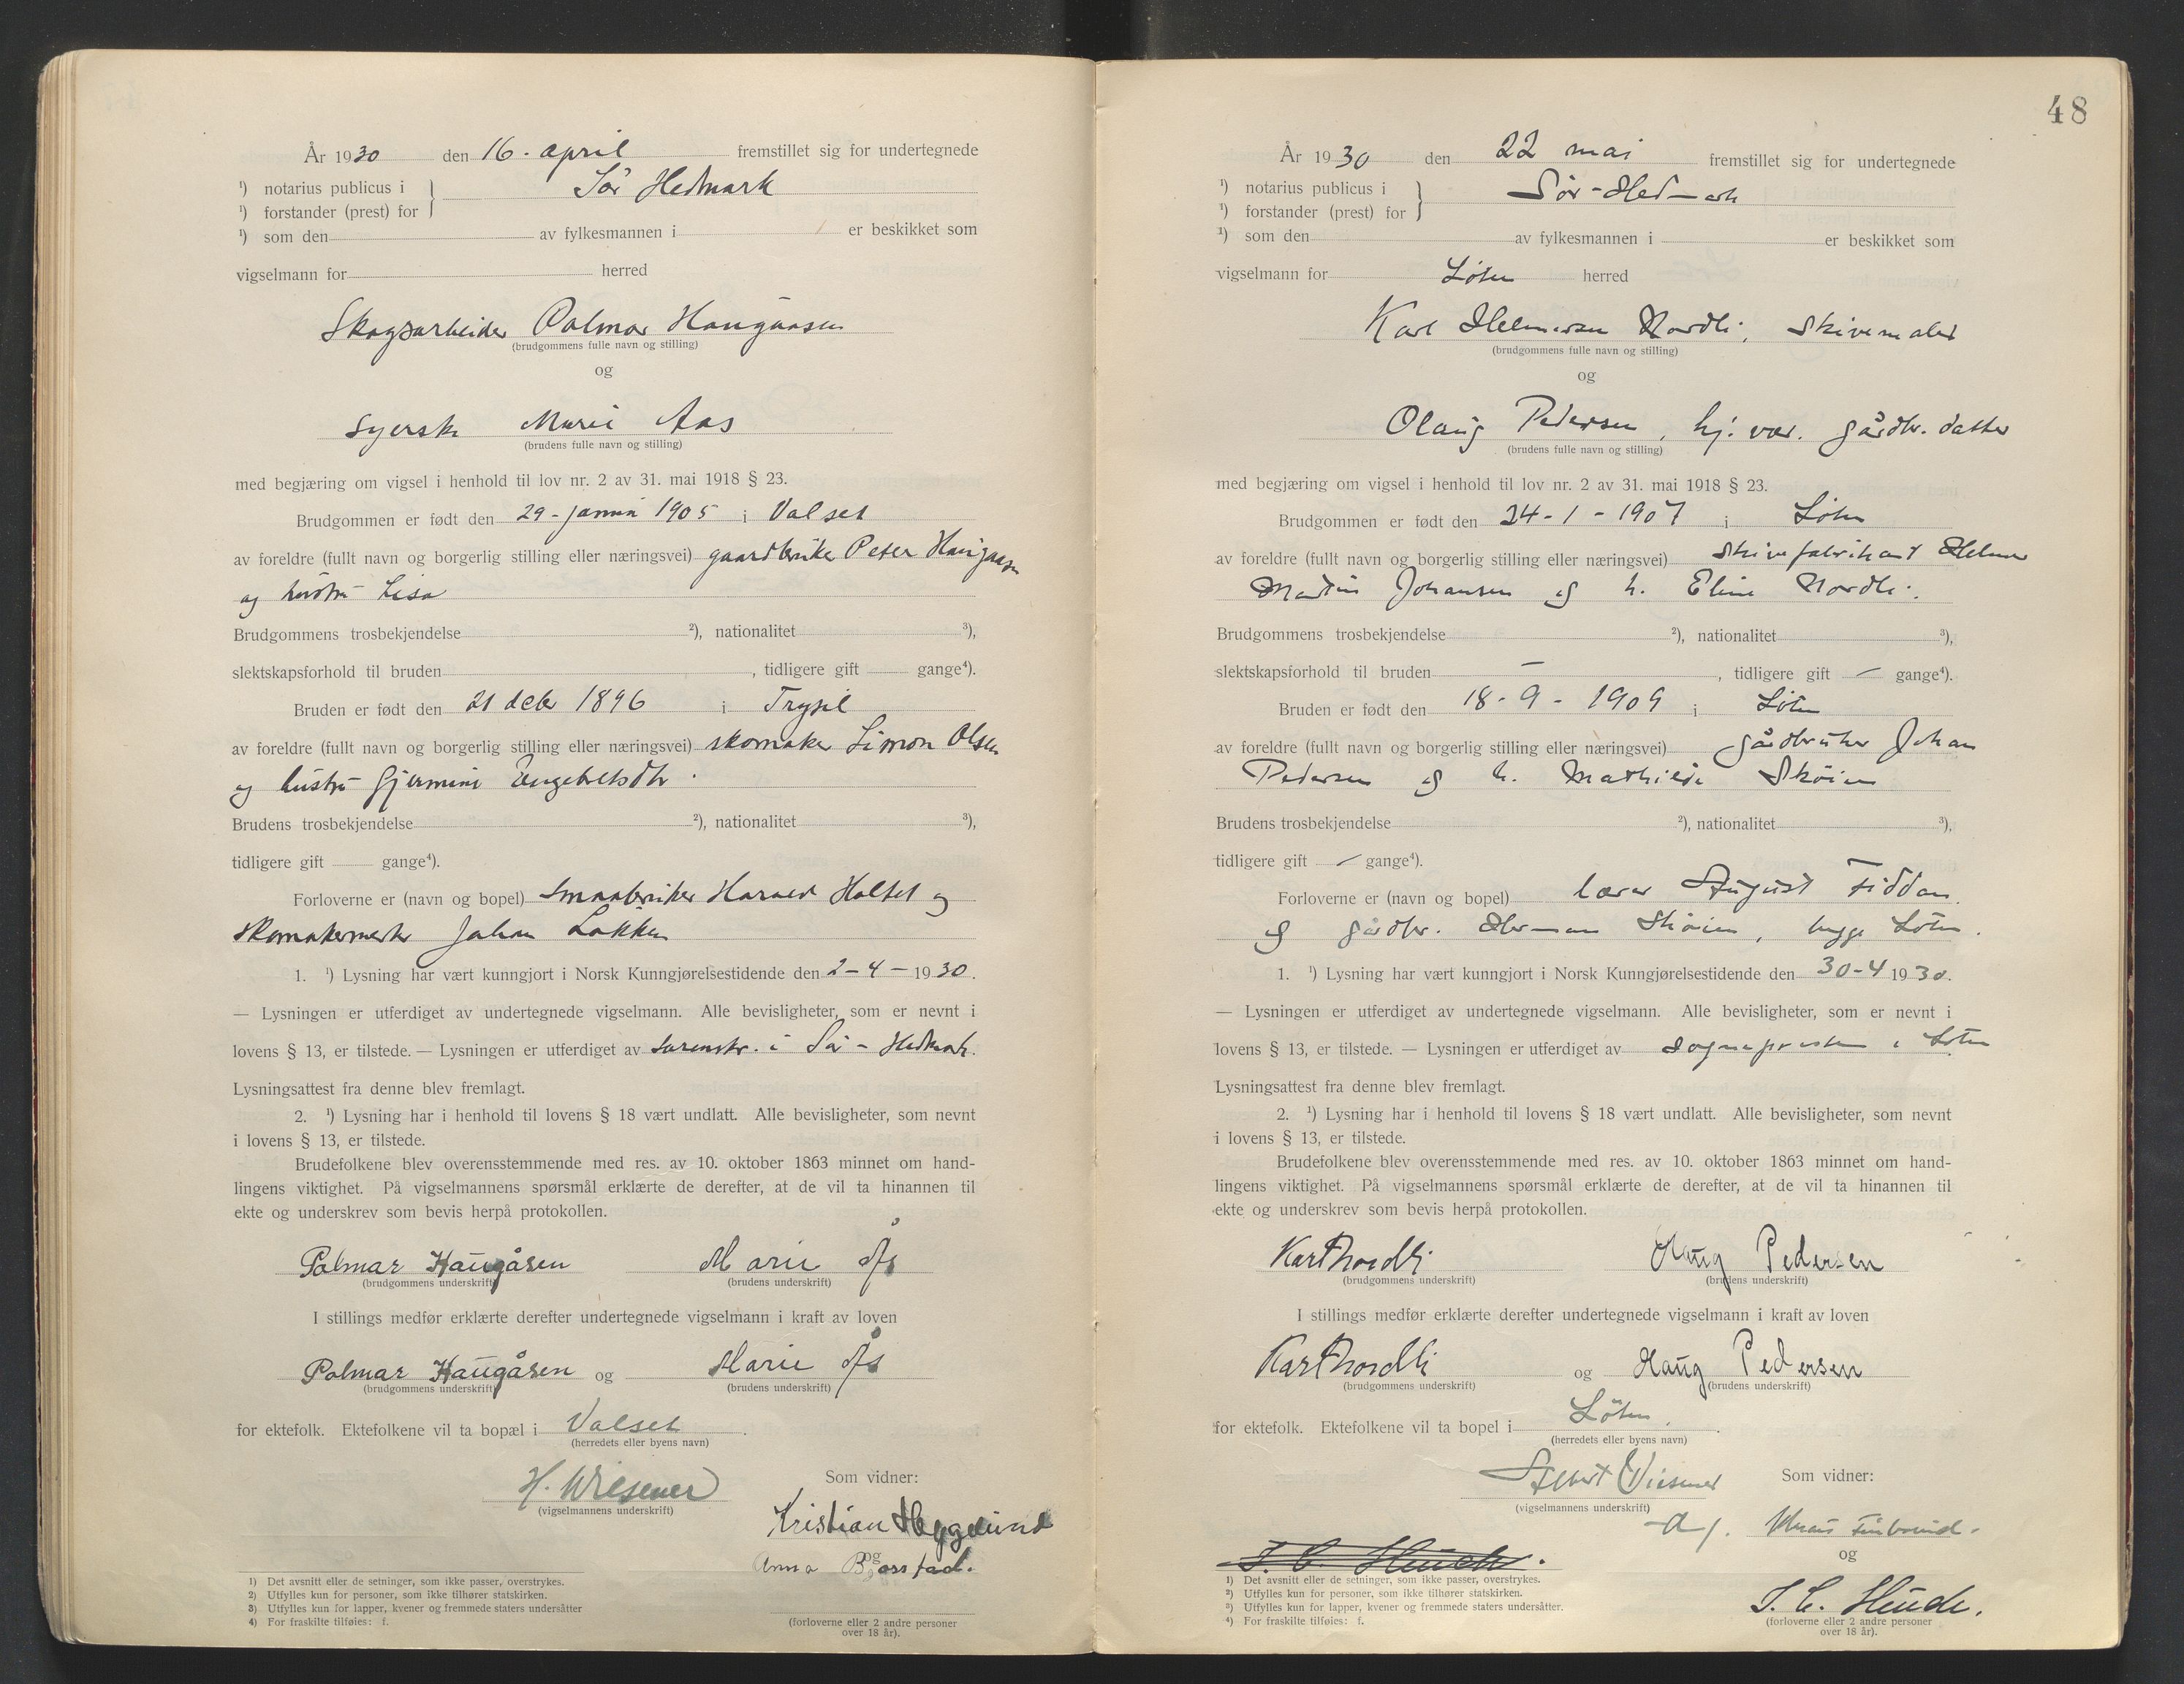 År 1930 den 16. april fremstillet sig for undertegnede
¹) notarius publicus i } Sør Hedmark
¹) forstander (prest) for
¹) som den av fylkesmannen i er beskikket som
vigselmann for herred
Skogsarbeider Palmar Haugaasen
(brudgommens fulle navn og stilling)
og
Syerske Marie Aas
(brudens fulle navn og stilling)
med begjæring om vigsel i henhold til lov nr. 2 av 31. mai 1918 § 23.
Brudgommen er født den 29 - januar 1905 i Valset
av foreldre (fullt navn og borgerlig stilling eller næringsvei) gaardbruker Peter Haugaasen
og hustru Lisa
Brudgommens trosbekjendelse ²), nationalitet ³),
slektskapsforhold til bruden , tidligere gift gange⁴).
Bruden er født den 21 decbr 1896 i Trysil
av foreldre (fullt navn og borgerlig stilling eller næringsvei) skomaker Simon Olsen
og hustru Gjermine Engebretsdtr.
Brudens trosbekjendelse ²), nationalitet ³),
tidligere gift gange⁴).
Forloverne er (navn og bopel) smaabruker Harald Holtet og
skomakermester Johan Løkken
1. ¹) Lysning har vært kunngjort i Norsk Kunngjørelsestidende den 2-4-1930.
— Lysningen er utferdiget av undertegnede vigselmann. Alle bevisligheter, som er nevnt i
lovens § 13, er tilstede. — Lysningen er utferdiget av sorenskr. i Sør-Hedmark.
Lysningsattest fra denne blev fremlagt.
2. ¹) Lysning har i henhold til lovens § 18 vært undlatt. Alle bevisligheter, som nevnt
i lovens § 13, er tilstede.
Brudefolkene blev overensstemmende med res. av 10. oktober 1863 minnet om hand-
lingens viktighet. På vigselmannens spørsmål erklærte de derefter, at de vil ta hinannen til
ekte og underskrev som bevis herpå protokollen.
Palmar Haugåsen Marie Ås
(brudgommens underskrift) (brudens underskrift)
I stillings medfør erklærte derefter undertegnede vigselmann i kraft av loven
Palmar Haugåsen og Marie Ås
(brudgommens underskrift) (brudens underskrift)
for ektefolk. Ektefolkene vil ta bopæl i Valset.
(herredets eller byens navn)
H. Wiesener Som vidner:
(vigselmannens underskrift)
Kristian Heggelund
og
Anna Borstad.
¹) Det avsnitt eller de setninger, som ikke passer, overstrykes.
²) Utfylles kun for personer, som ikke tilhører statskirken.
³) Utfylles kun for lapper, kvener og fremmede staters undersåtter
⁴) For fraskilte tilføies: f.
(forloverne eller 2 andre personer
over 18 år).
48
År 1930 den 22 mai fremstillet sig for undertegnede
¹) notarius publicus i } Sør-Hedmark
¹) forstander (prest) for
¹) som den av fylkesmannen i er beskikket som
vigselmann for Løten herred
Karl Helmersen Nordli, skivemaler
(brudgommens fulle navn og stilling)
og
Olaug Pedersen, hj. vær. gårdbr. datter
(brudens fulle navn og stilling)
med begjæring om vigsel i henhold til lov nr. 2 av 31. mai 1918 § 23.
Brudgommen er født den 24-1-1907 i Løten
av foreldre (fullt navn og borgerlig stilling eller næringsvei) skivefabrikant Helmer
Martin Johansen og h. Eline Nordli.
Brudgommens trosbekjendelse ²), nationalitet ³),
slektskapsforhold til bruden — , tidligere gift — gange⁴).
Bruden er født den 18-9-1909 i Løten
av foreldre (fullt navn og borgerlig stilling eller næringsvei) gårdbruker Johan
Pedersen og h. Mathilde Skøien
Brudens trosbekjendelse ²), nationalitet ³),
tidligere gift — gange⁴).
Forloverne er (navn og bopel) lærer August Fiddan
og gårdbr. Herman Skøien, begge Løten.
1. ¹) Lysning har vært kunngjort i Norsk Kunngjørelsestidende den 30-4 1930.
— Lysningen er utferdiget av undertegnede vigselmann. Alle bevisligheter, som er nevnt i
lovens § 13, er tilstede. — Lysningen er utferdiget av sognepresten i Løten
Lysningsattest fra denne blev fremlagt.
2. ¹) Lysning har i henhold til lovens § 18 vært undlatt. Alle bevisligheter, som nevnt
i lovens § 13, er tilstede.
Brudefolkene blev overensstemmende med res. av 10. oktober 1863 minnet om hand-
lingens viktighet. På vigselmannens spørsmål erklærte de derefter, at de vil ta hinannen til
ekte og underskrev som bevis herpå protokollen.
Karl H Nordli Olaug Pedersen
(brudgommens underskrift) (brudens underskrift)
I stillings medfør erklærte derefter undertegnede vigselmann i kraft av loven
Karl H Nordli og Olaug Pedersen
(brudgommens underskrift) (brudens underskrift)
for ektefolk. Ektefolkene vil ta bopel i Løten.
(herredets eller byens navn)
Albert Wiesener Som vidner:
(vigselmannens underskrift)
og
J. C. Heuch.
J. C. Heuch.
¹) Det avsnitt eller de setninger, som ikke passer, overstrykes.
²) Utfylles kun for personer, som ikke tilhører statskirken.
³) Utfylles kun for lapper, kvener og fremmede staters undersåtter.
⁴) For fraskilte tilføies: f.
(forloverne eller 2 andre personer
over 18 år).